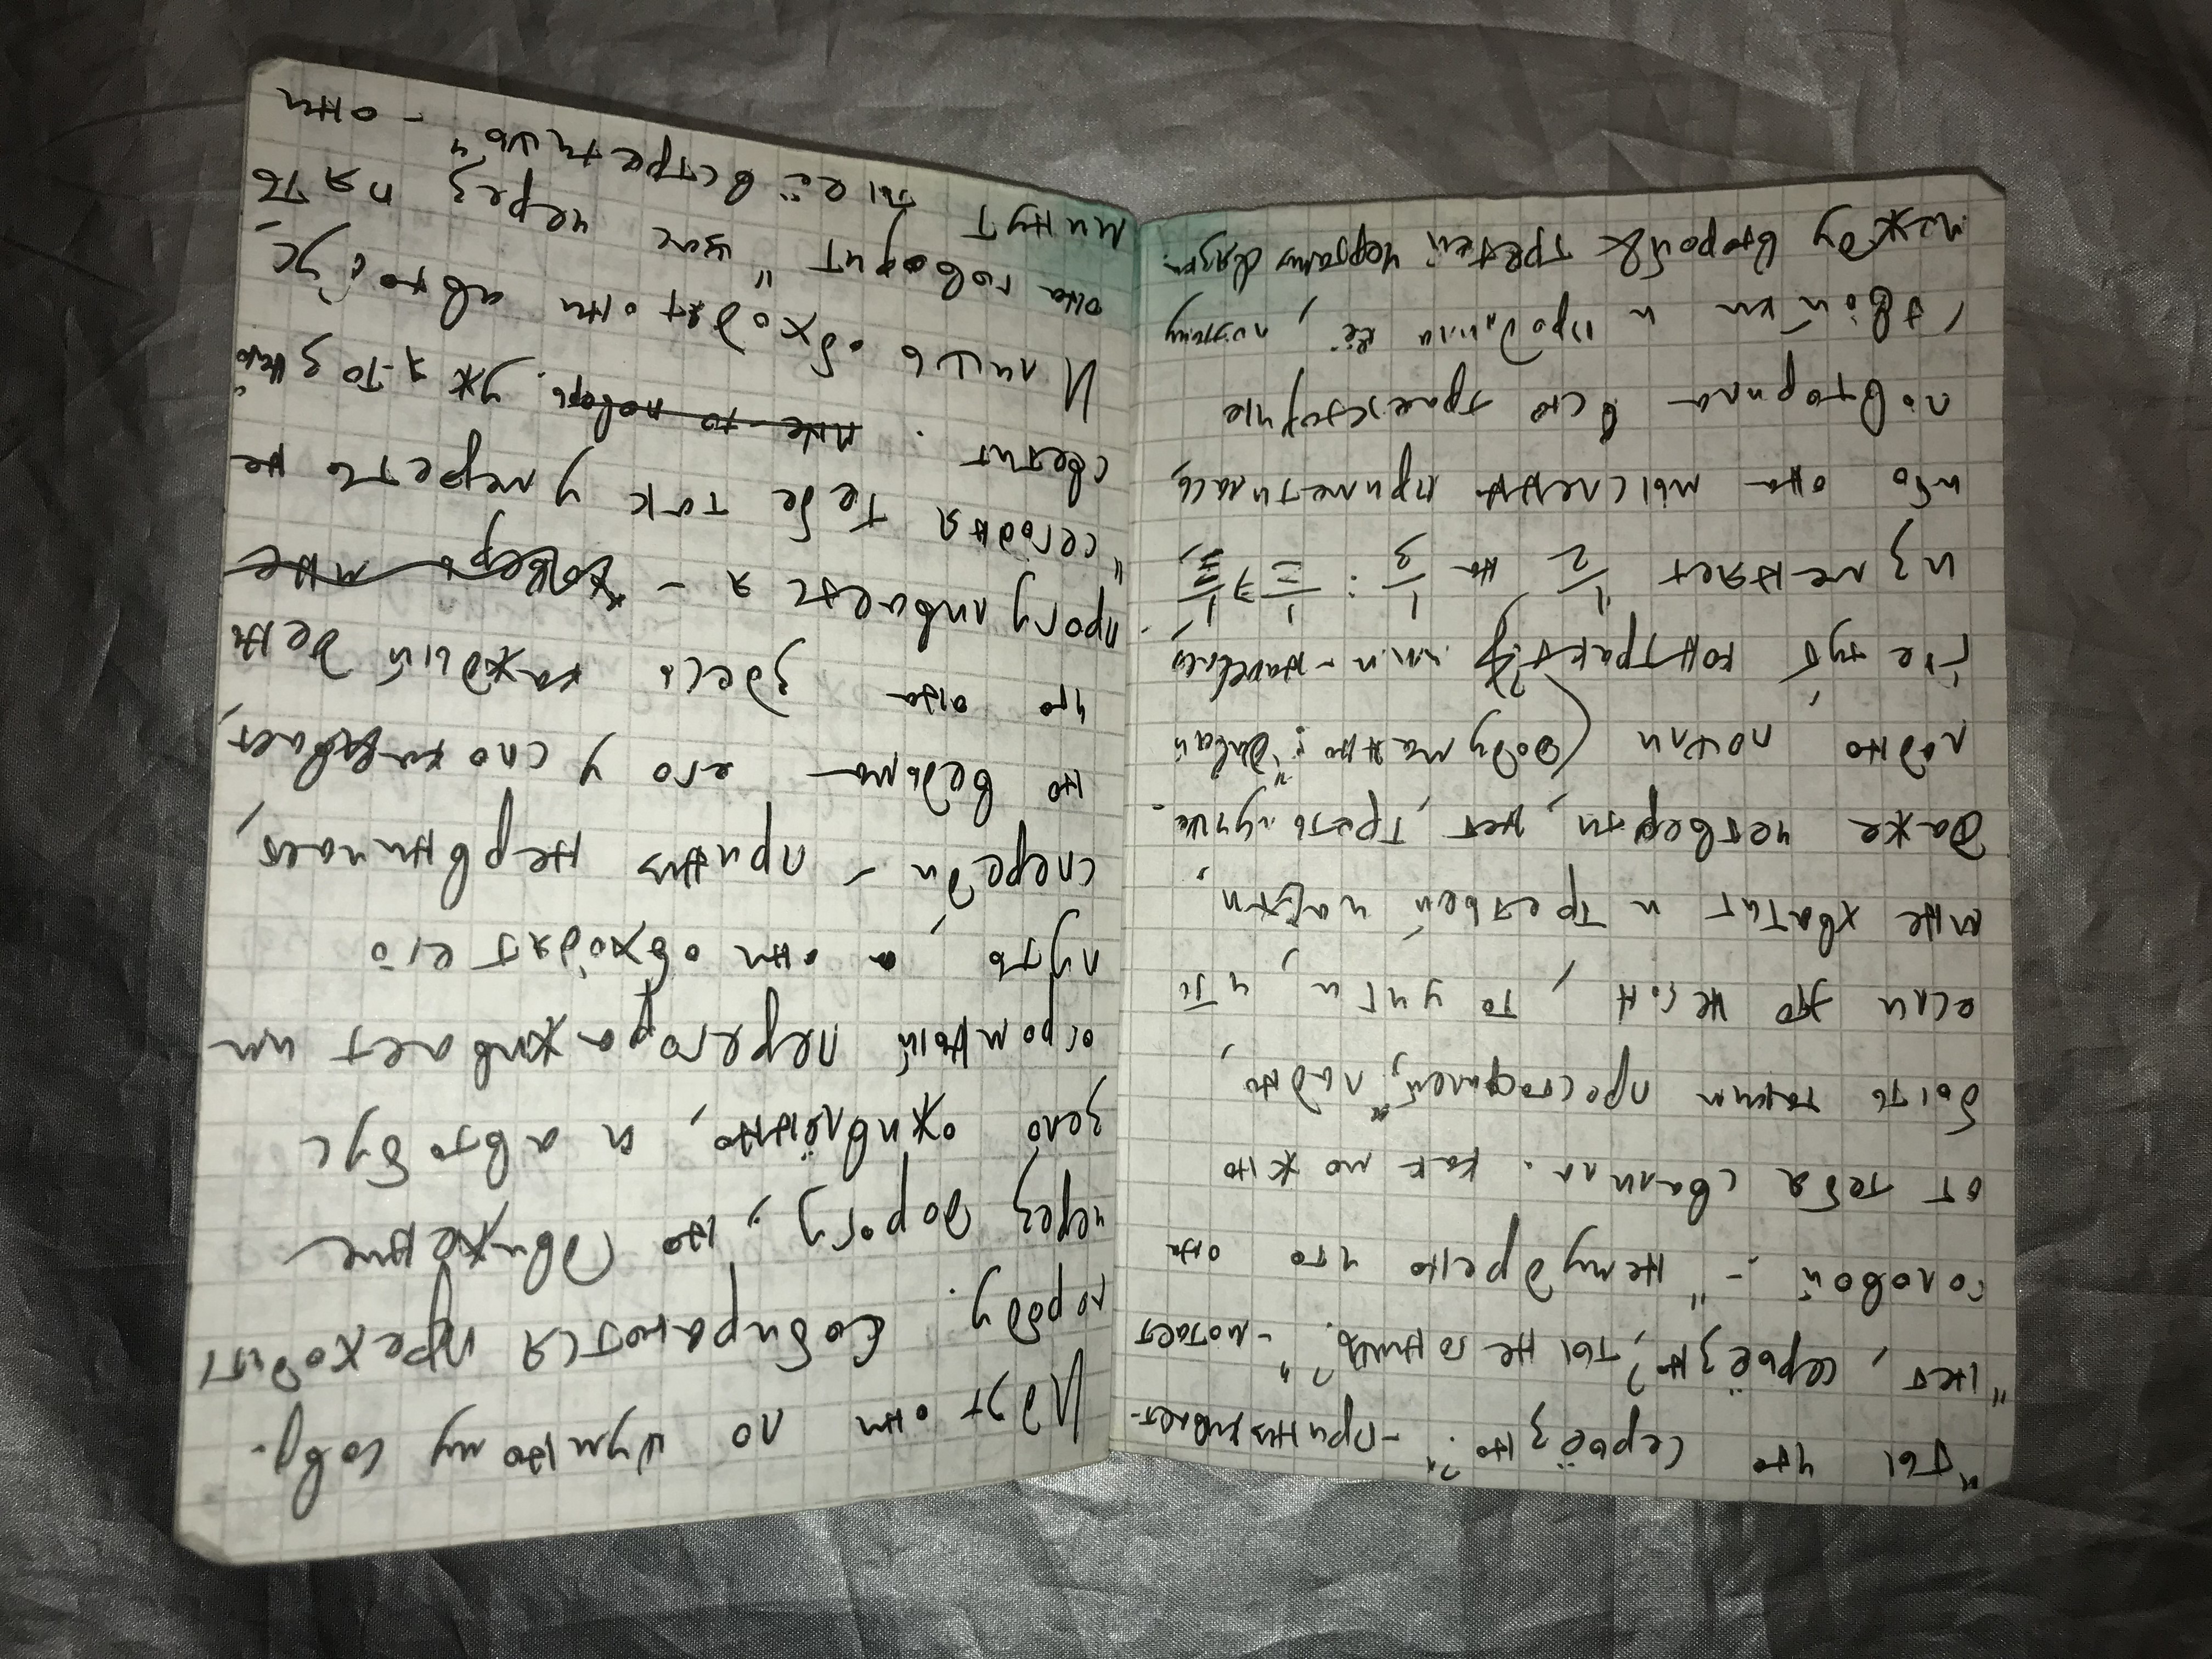 "ты что серьёзно?" -
"нет, серьёзно?, ты не гонишь?" - мотает
головой. - "немудрено что она
от тебя свалила. как можно
быть таким простофилей," ладно,
если это не сон, то учти, что
мне хватит и третьей части,
даже четверти, нет, треть лучше.
ладно пошли (додумано: "давай
где тут контракт?")
изменяет 1/2 на 1/3 :
ибо она мысленно приметилась,
повторила всю траекторию
двойки и продлила её, поэтому
между второй & третей чертами связки.
Идут они по шумному совр.
городу. Собираются преходить
через дорогу, но движение
зело оживлённо, и автобус
огромный перегораживает им
путь, а они обходят его
спереди - принц нервничает,
но ведьма его успокаевает,
что она здесь каждый день
прогуливается - поверь мне
"сегодня тебе так умереть не
светит. мне-то поверь. уж я-то знаю"
И лишь обходят они автобус,
она говорит "щас через пять
минут ты её встретишь" - они